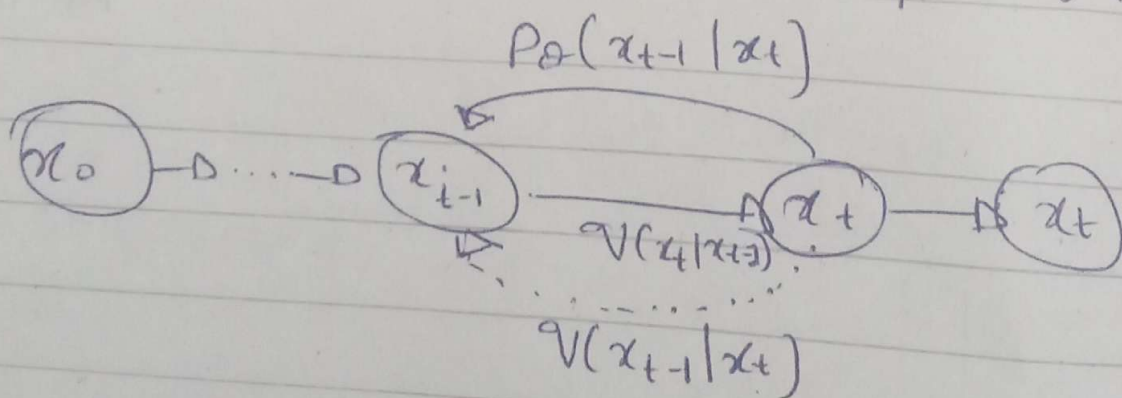 Pθ(xt-1 | xt)
x0 → ..... → xt-1 → xt → xt
q(xt | xt-1)
q(xt-1 | xt)